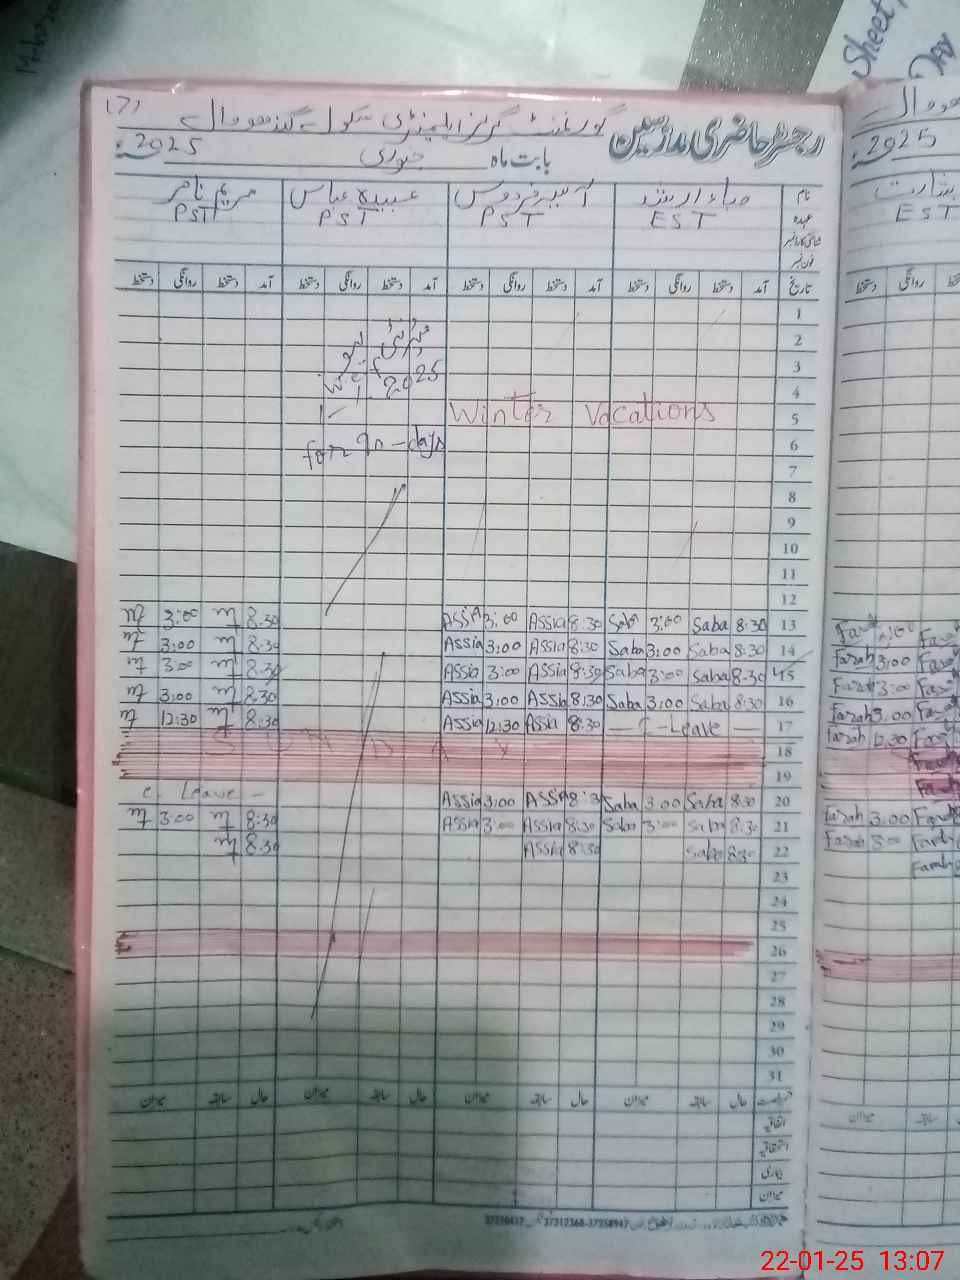 (7)
رجسٹر حاضری مدرسین گورنمنٹ گرلز ایلیمنٹری سکول گندھووال
بابت ماہ جنوری 2025
نام صباء ارشد آسیہ فردوس عبیدہ عباس مریم ناصر
عہدہ EST PST PST PST
شناختی کارڈ نمبر
فون نمبر
تاریخ آمد دستخط روانگی دستخط آمد دستخط روانگی دستخط آمد دستخط روانگی دستخط آمد دستخط روانگی دستخط
1
2
3
w.e.f
4
1-1-2025
Winter Vacations 5
6
for 90-days
7
8
9
10
11
12
3:00 8:30 Assia 3:00 Assia 8:30 Saba 3:00 Saba 8:30 13
3:00 8:30 Assia 3:00 Assia 8:30 Saba 3:00 Saba 8:30 14
3:00 8:30 Assia 3:00 Assia 8:30 Saba 3:00 Saba 8:30 15
3:00 8:30 Assia 3:00 Assia 8:30 Saba 3:00 Saba 8:30 16
12:30 8:30 Assia 12:30 Assia 8:30 — C-Leave — 17
SUNDAY 18
19
C. Leave - Assia 3:00 Assia 8:3 Saba 3:00 Saba 8:30 20
3:00 8:30 Assia 3:00 Assia 8:30 Saba 3:00 Saba 8:30 21
8:30 Assia 8:30 Saba 8:30 22
23
24
25
26
27
28
29
30
31
حال سابقہ میزان حال سابقہ میزان حال سابقہ میزان حال سابقہ میزان
اتفاقیہ
استحقاقیہ
بیماری
میزان
2025
EST
روانگی دستخط
Farah 3:00
Farah 3:00
Farah 3:00
Farah 3:00
Farah 12:30
Farah 3:00
Farah
Sheet
22-01-25 13:07